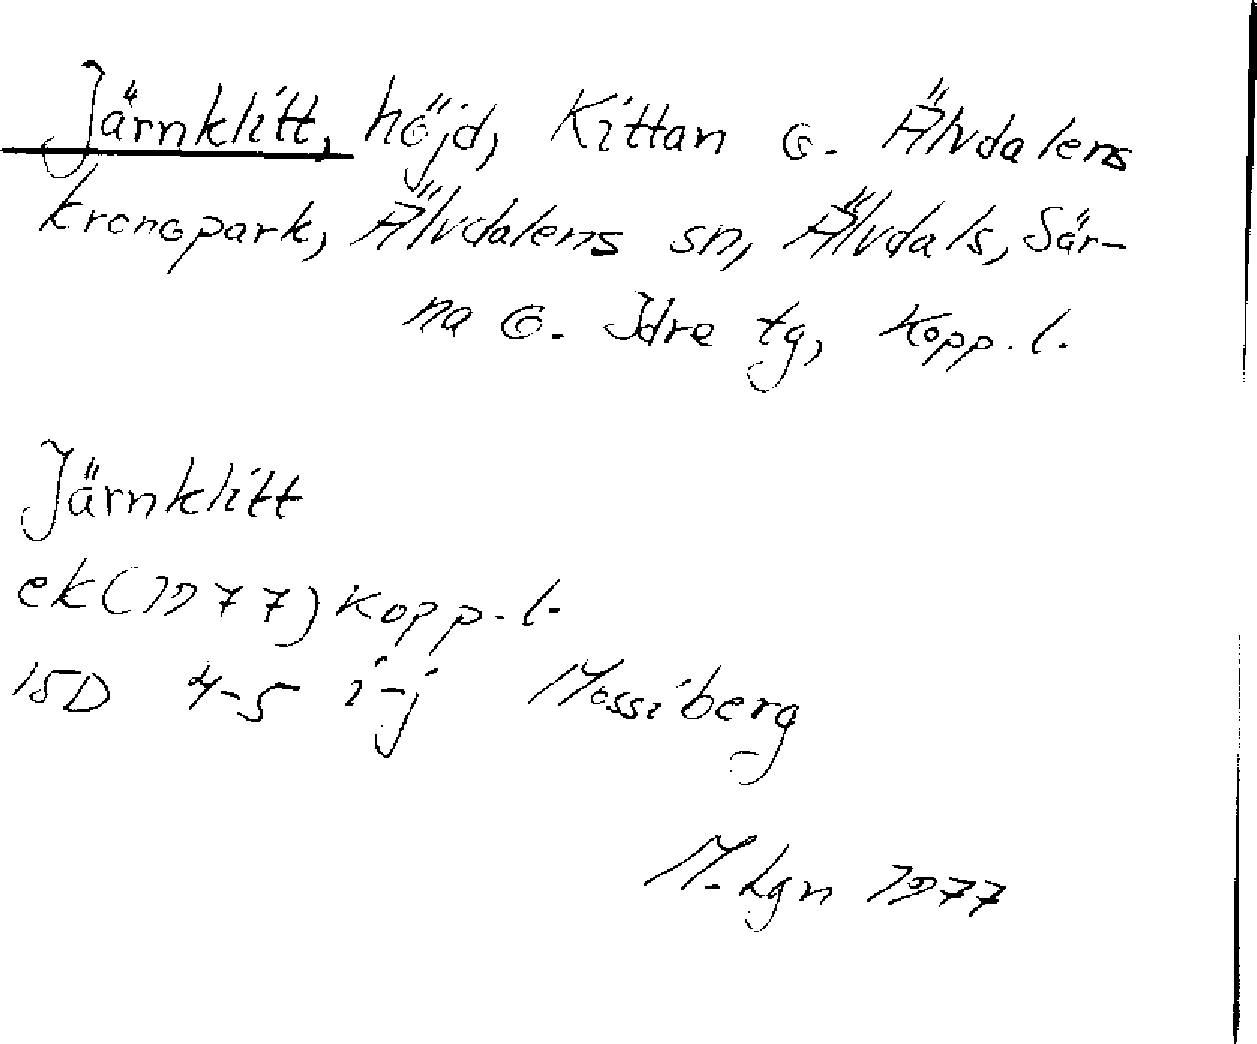 Järnklitt, höjd, Kittan o. Älvdalens
kronopark, Älvdalens sn, Älvdals, Sär-
na o. Idre tg, Kopp. l.
Järnklitt
ek(1977) Kopp. l.
15D 4-5 i-j Mossiberg
M. Lgn 1977